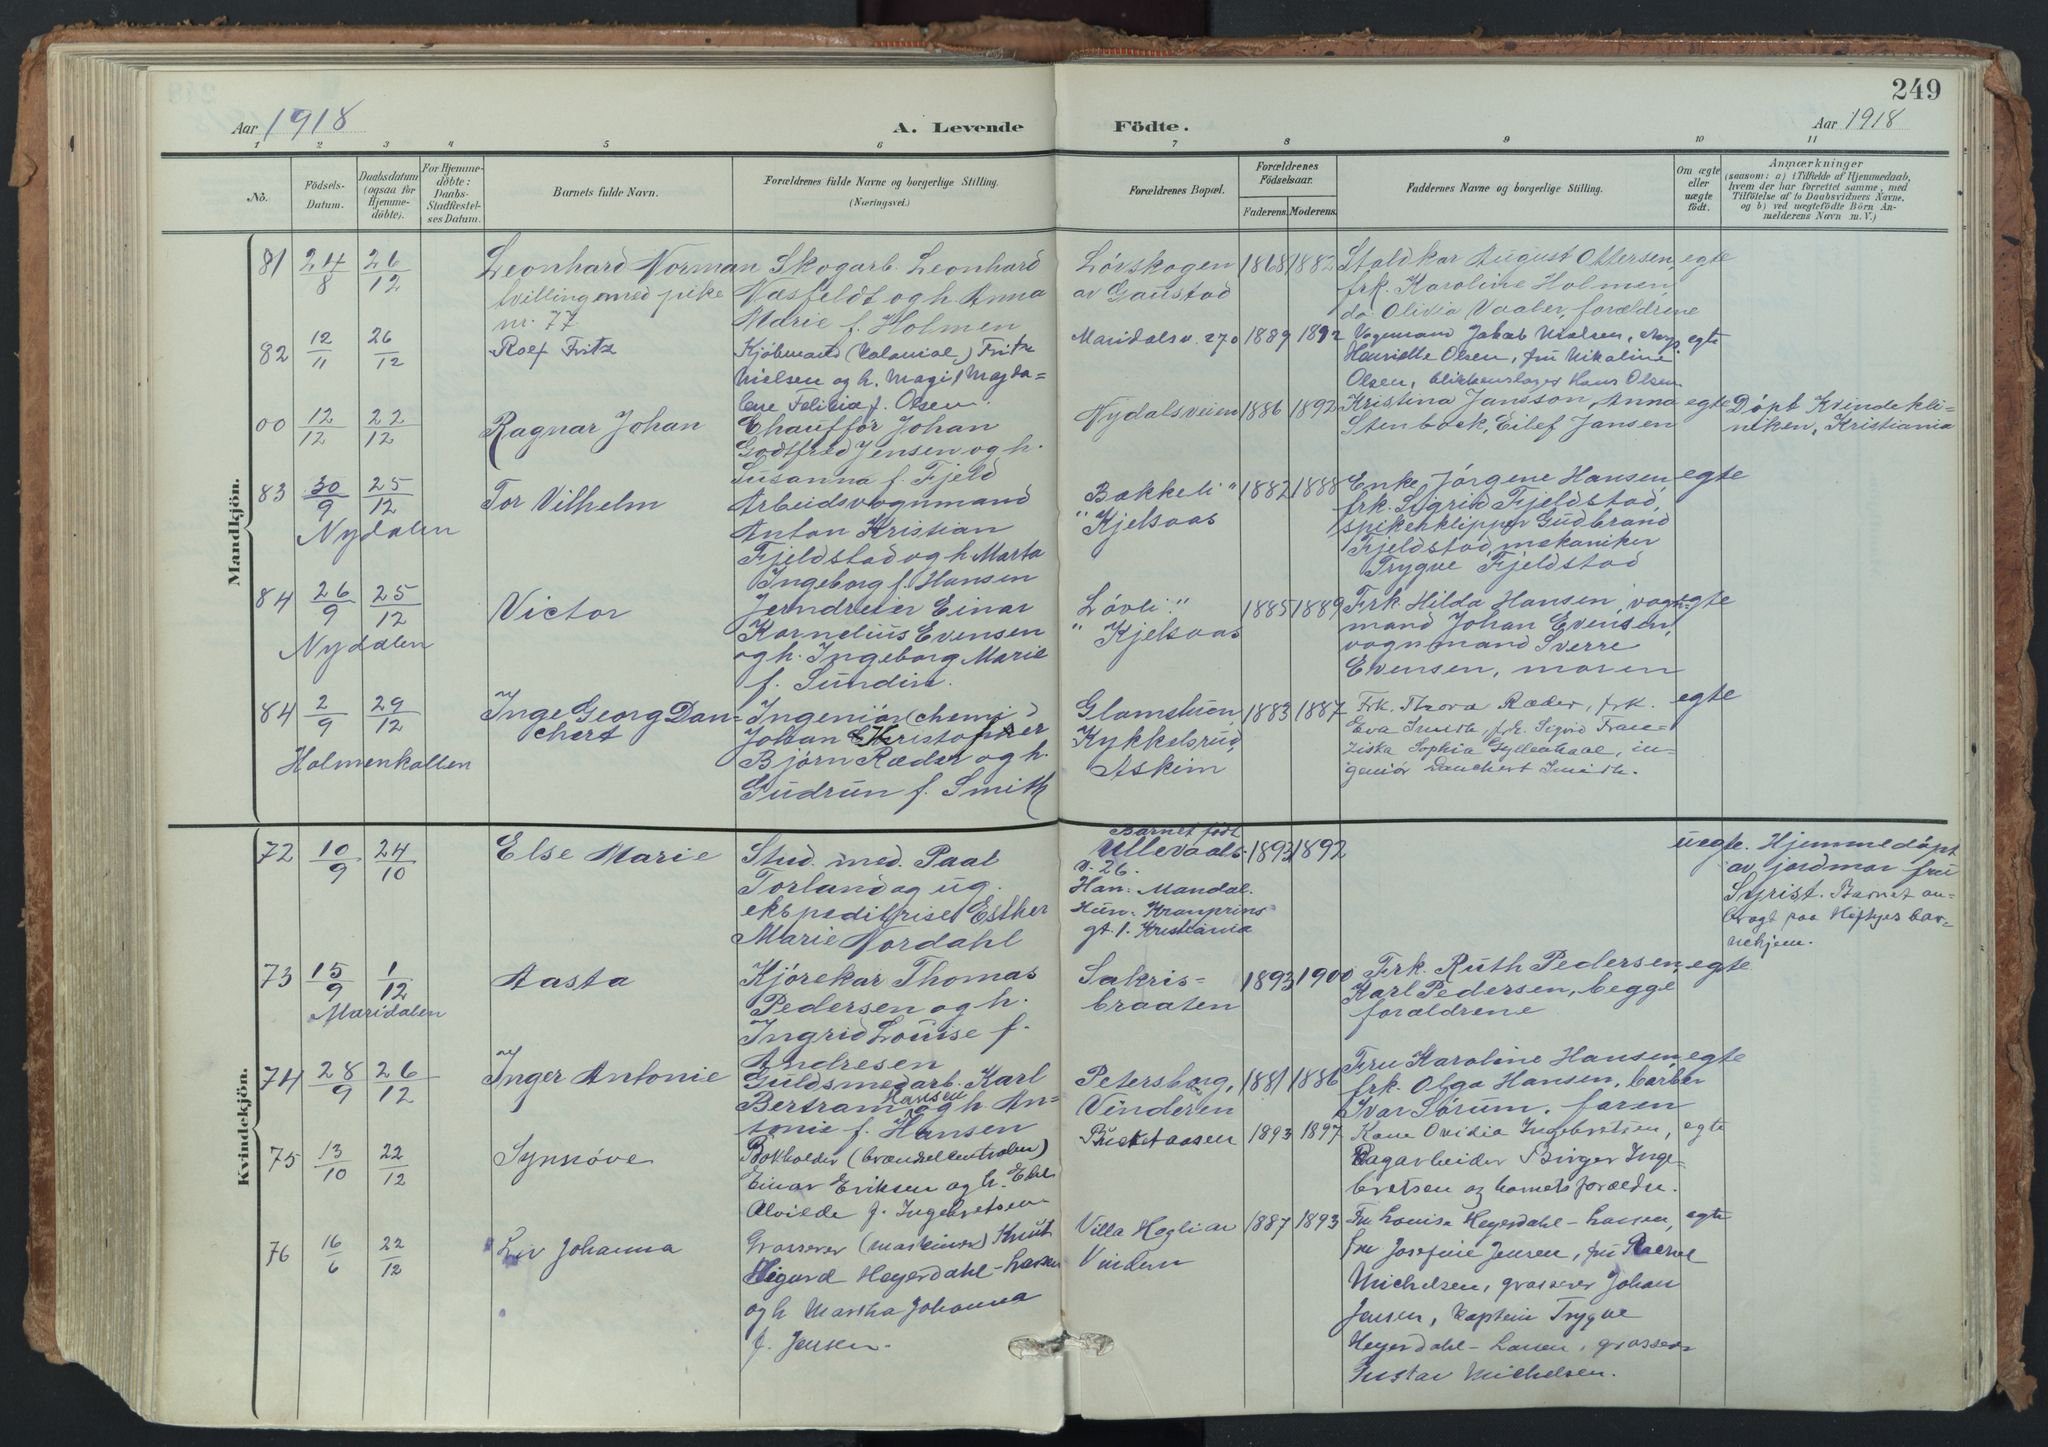 249
Aar 1918
A. Levende Födte.
Aar 1918
1 2 3 4 5 6 7 8 9 10 11
No.
Födsels-Datum.
Daabsdatum (ogsaa for Hjemmedöbte).
For Hjemmedöbte: Daabs-Stadfæstelses Datum.
Barnets fulde Navn.
Forældrenes fulde Navne og borgerlige Stilling.
(Næringsvei.)
Forældrenes Bopæl.
Forældrenes Födselsaar.
Faderens. Moderens.
Faddernes Navne og borgerlige Stilling.
Om ægte eller uægte födt.
Anmærkninger
(saasom: a) i Tilfælde af Hjemmedaab,
hvem der har forrettet samme, med
Tilföielse af to Daabsvidners Navne,
og b) ved uægtefödte Börn Anmelderens Navn m. V.)
Mandkjön.
81 24/8 26/12
Leonhard Norman
tvilling med pike
nr. 77
Skogarb. Leonhard
Næsfeldt og h. Anna
Marie f. Holmen
Lövskogen
av Gaustad
1868 1882
Staldkar August Ottersen,
frk. Karoline Holmen,
do. Olivia Vaaler, forældrene
egte
82 12/11 26/12
Rolf Fritz
Kjöbmand (kolonial) Fritz
Nielsen og h. Magi Magda-
lene Felicia f. Olsen.
Maridalsv. 270
1889 1892
Vognmand Jakob Nielsen,
Henriette Olsen, fru Nikoline
Olsen, blikkenslager Hans Olsen
egte
00 12/12 22/12
Ragnar Johan
Chaufför Johan
Godtfred Jensen og h.
Susanna f. Fjeld
Nydalsveien
1886 1892
Kristina Jansson, Anna
Stenbock, Eilef Jansen
egte
Döpt Kvindekli-
niken, Kristiania
83 30/9 25/12
Nydalen
Tor Vilhelm
Arbeidsvognmand
Anton Kristian
Fjeldstad og h. Marta
Ingeborg f. Hansen
Bækkeli "
" Kjelsaas
1882 1888
Enke Jörgene Hansen
frk. Sigrid Fjeldstad,
spikerklipper Gudbrand
Fjeldstad, mekaniker
Trygve Fjeldstad
egte
84 26/9 25/12
Nydalen
Victor
Jerndreier Einar
Kornelius Evensen
og h. Ingeborg Marie
f. Sundin.
Lövli "
" Kjelsaas
1885 1889
Frk. Hilda Hansen, vogn-
mand Johan Evensen,
vognmand Sverre
Evensen, moren
egte
84 2/9 29/12
Holmenkollen
Inge Georg Dan-
chert
Ingeniör (chemi)
Johan Christopher
Björn Ræder og h.
Gudrun f. Smith
Glamstuen,
Kykkelsrud,
Askim
1883 1887
Frk. Thora Ræder, frk.
Eva Smith, frk. Sigrid Fran-
ziska Sophia Gyllenhaal, in-
geniör Danchert Smith.
egte
Kvindekjön.
72 10/9 24/10
Else Marie
Stud. med. Paal
Torland og ug.
ekspeditrise Esther
Marie Nordahl
Barnet födt
Ullevaals-
v. 26.
Han: Mandal.
Hun: Kronprins-
gt. 1. Kristiania
1893 1892
uegte.
Hjemmedöpt
av jordmor fru
Syrist. Barnet an-
bragt paa Höftyes bar-
nehjem.
73 15/9 1/12
Maridalen
Aasta
Kjörekar Thomas
Pedersen og h.
Ingrid Louise f.
Andresen
Sakris-
braaten
1893 1900
Frk. Ruth Pedersen,
Karl Pedersen, begge
forældrene
egte
74 28/9 26/12
Inger Antonie
Guldsmedarb. Karl
Bertram Hansen og h. An-
tonie f. Hansen
Petersborg,
Vinderen
1881 1886
Fru Karoline Hansen,
frk. Olga Hansen, barber
Ivar Sörum, faren
egte
75 13/10 22/12
Synnöve
Bokholder (brændselcentralen)
Einar Eriksen og h.
Alvilde f. Ingebretsen
1893 1897
Kone Ovidia Ingebretsen,
Fagarbeider Birger Inge-
bretsen og barnets forældre.
egte
76 16/6 22/12
Liv Johanna
Grosserer (maskiner) Knut
Sigurd Heyerdahl-Larsen
og h Martha Johanna
f. Jensen.
Villa
Vinderen
1887 1893
Fru Louise Heyerdahl-Larsen,
fru Josefine Jensen, fru
Michelsen, grosserer Johan
Jensen, kaptein Trygve
Heyerdahl-Larsen, grosserer
Gustav Michelsen.
egte